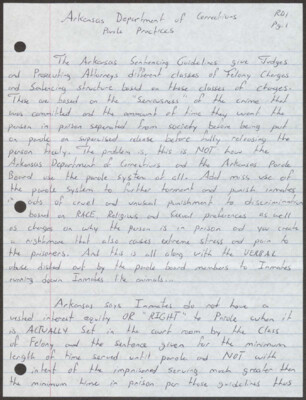 Arkansas Department of Corrections
Parole Practices
Pg. 1
The Arkansas Sentencing Guidelines give Judges
and Prosecuting Attorneys different classes of Felony Charges
and Sentencing structure based on those classes of charges.
These are based on the "seriousness" of the crime that
was committed and the amount of time they want the
person in prison separated from society before being put
on parole or supervised release before fully releasing the
person freely. The problem is this is NOT how the
Arkansas Department of Corrections and the Arkansas Parole
Board use the parole system at all. Add miss use of
the parole system to further torment and punish inmates
in acts of cruel and unusual punishment to discrimination
based on RACE Religious and Sexual preferences as well
as charges on why the person is in prison and you create
a nightmare that also causes extreme stress and pain to
the prisoners. And this is all along with the VERBAL
abuse dished out by the parole board members to Inmates
running down Inmates like animals...
Arkansas says Inmates do not have a
vested interest equity OR "RIGHT" to Parole when it
is ACTUALLY Set in the court room by the Class
of Felony and the sentence given for the minimum
length of time served until parole and NOT with
intent of the imprisoned serving much greater then
the minimum time in prison per those guidelines thus